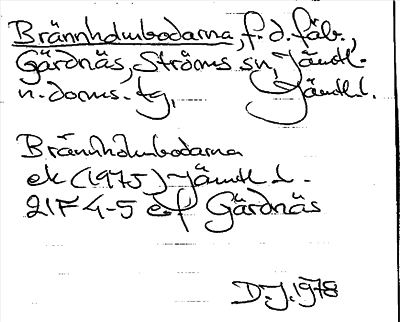 Brännholmbodarna, f.d. fäb.,
Gärdnäs, Ströms sn, Jämtl.
n. doms. tg, Jämtl. l.
Brännholmbodarna
ek (1975) Jämtl. l.
21F 4-5 ef Gärdnäs
D.J. 1978